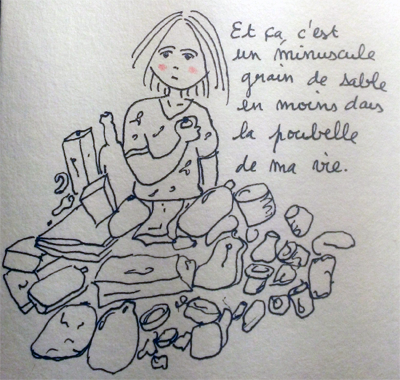 Et ça c'est
un minuscule
grain de sable
en moins dans
la poubelle
de ma vie.